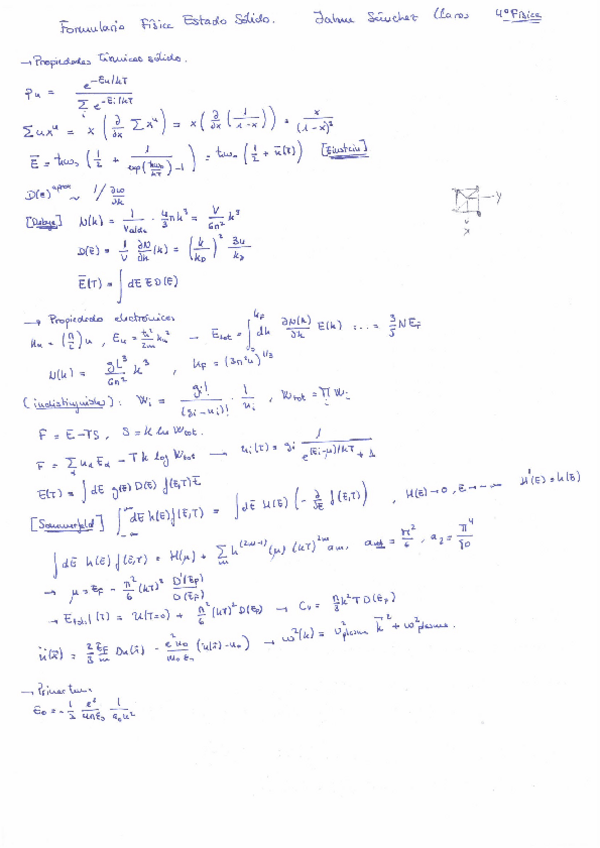 Formulario Física Estado Sólido. Jaime Sánchez Claros 4º Física
→ Propiedades térmicas sólido.
p_n = e^{-E_n/kT} / Σ_i e^{-E_i/kT}
Σ n x^n = x (∂/∂x Σ x^n) = x (∂/∂x (1/(1-x))) = x/(1-x)²
Ē = ħω₀ (1/2 + 1/(exp(ħω₀/kT) - 1)) = ħω₀ (1/2 + n̄(t)) [Einstein]
D(e) ~ 1/ ∂ω/∂k
[Debye] N(k) = 1/V · 4/3 π k³ = V/6π² k³
y
x
D(E) = 1/V ∂N/∂k (k) = (k/k_D)² 3N/k_D
Ē(T) = ∫ dE E D(E)
→ Propiedades electrónicas
k_n = (π/L) n , E_n = ħ²/2m k_n² → E_tot = ∫₀^{k_F} dk ∂N(k)/∂k E(k) = ... = 3/5 N E_F
N(k) = gL³/6π² k³ , k_F = (3π²n)^{1/3}
(indistinguibles) : W_i = g_i!/(g_i - n_i)! · 1/n_i , W_tot = Π_i W_i
F = E - TS , S = k ln W_tot.
F = Σ_α n_α E_α - T k log W_tot → n_i(T) = g_i 1/(e^{(E_i-μ)/kT} + 1)
E(T) = ∫ dE g(E) D(E) f(E,T) E
[Sommerfeld] ∫_{-∞}^{∞} dE h(E) f(E,T) = ∫ dE H(E) (- ∂/∂E f(E,T)) , H(E) → 0, E → -∞ H'(E) = h(E)
∫ dE h(E) f(E,T) = H(μ) + Σ_m h^{(2m-1)}(μ) (kT)^{2m} a_m, a_1 = π²/6 , a_2 = π⁴/90
→ μ = E_F - π²/6 (kT)² D'(E_F)/D(E_F)
→ E_total (T) = U(T=0) + π²/6 (kT)² D(E_F) → C_v = π²/3 k² T D(E_F)
ü(x̄) = 2/3 E_F/m Δu(x̄) - e² n_0/m_0 ε_0 (u(x̄) - u_0) → ω²(k) = v²_plasma k̄² + ω²_plasma.
E_0 = - 1/2 e²/4πε_0 1/a_0 n²